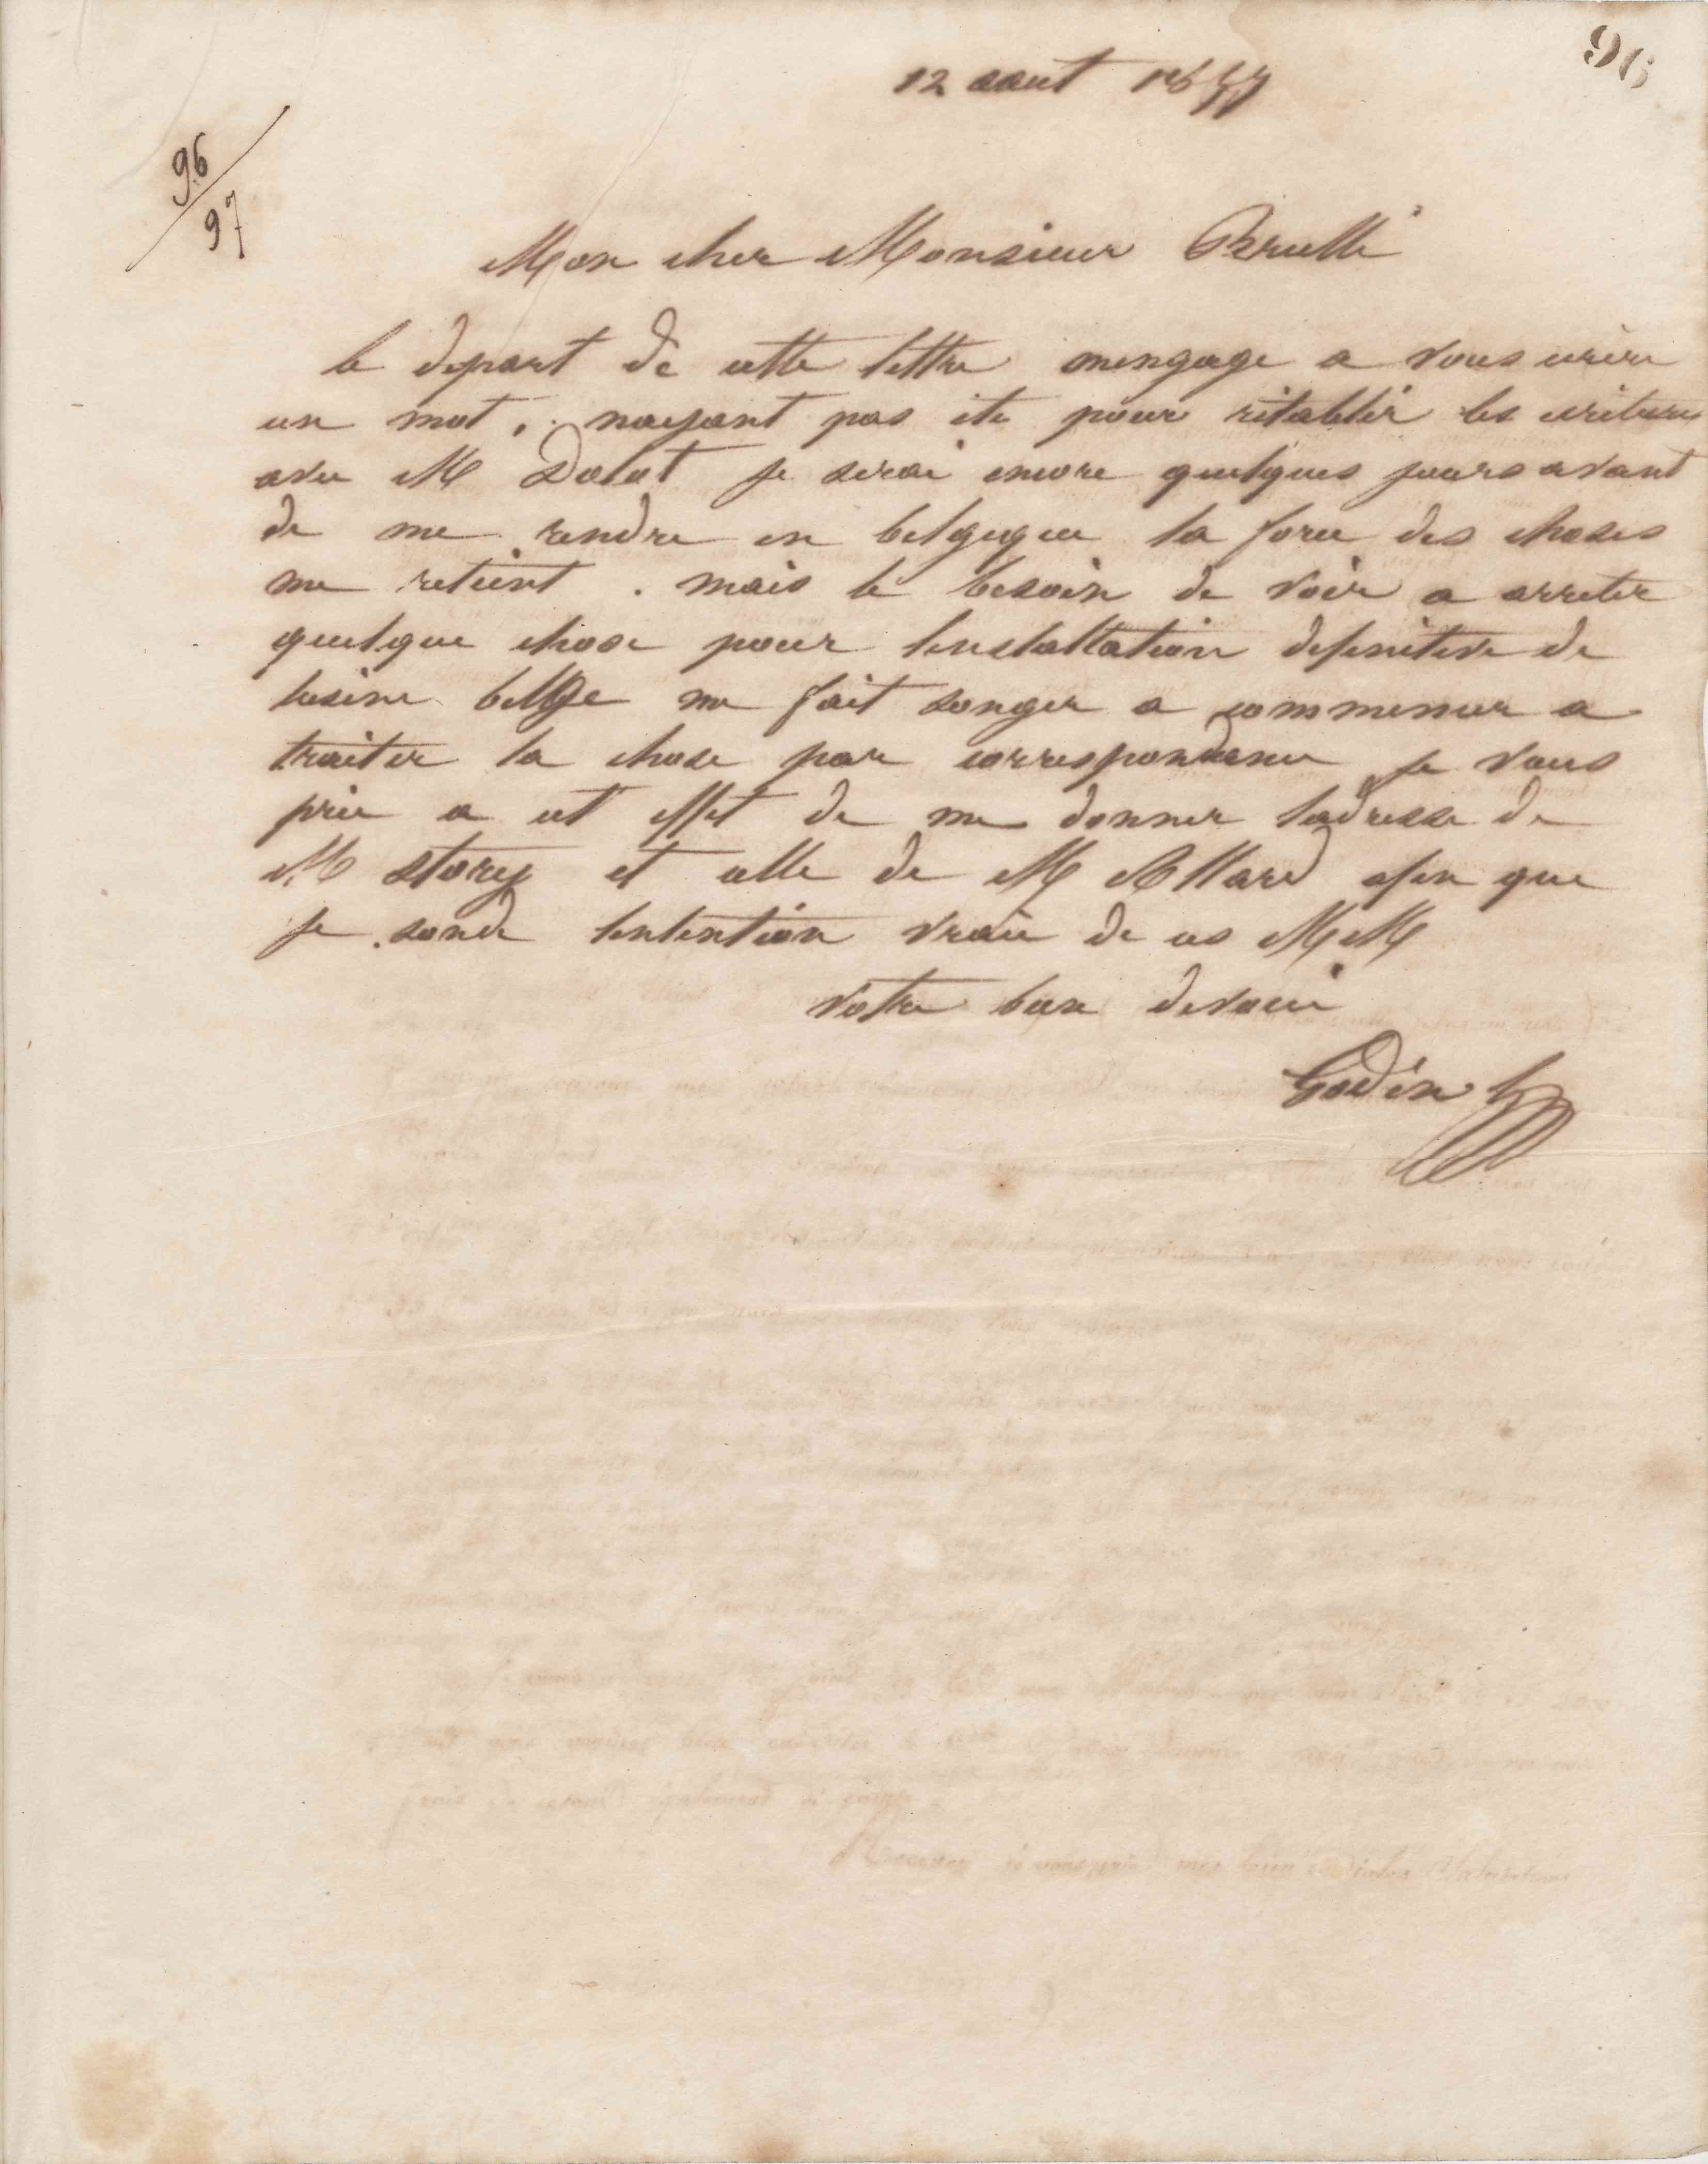 96
12 aout 1857
96/97
Mon cher Monsieur Brullé
le depart de cette lettre mengage a vous ecrire
un mot, nayant pas ete pour retablir les ecritures
avec M Dolat je serai encore quelques jours avant
de me rendre en belgique la force des choses
me retient. mais le besoin de voir a arreter
quelque chose pour linstallation definitive de
lusine belge me fait songer a commencer a
traiter la chose par correspondance je vous
prie a cet effet de me donner ladresse de
M story et celle de M Allard afin que
je sonde lintention vraie de ces MM
votre bien devoué
Godin